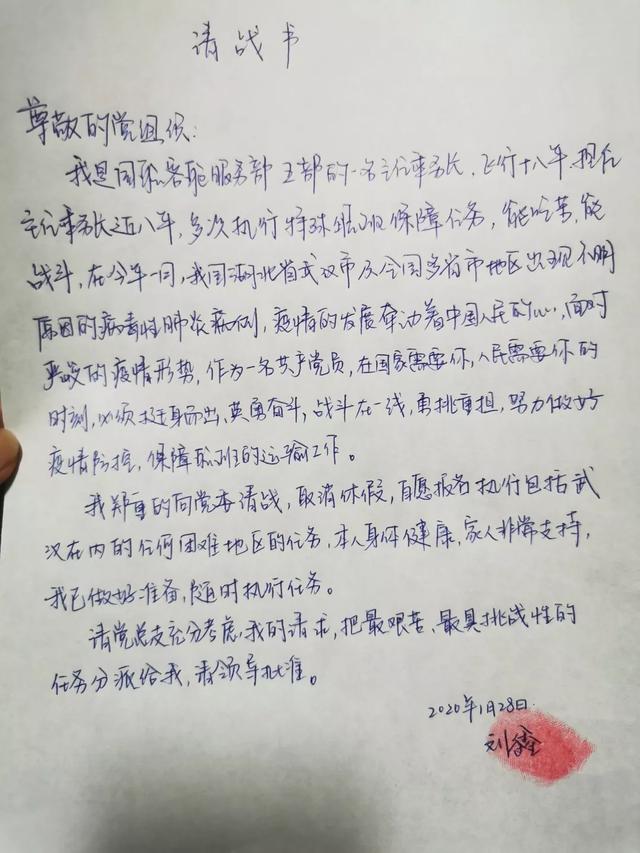 请战书
尊敬的党组织:
我是国航客舱服务部五部的一名主任乘务长,飞行十八年,担任
主任乘务长近八年,多次执行特殊航班保障任务,能吃苦,能
战斗,在今年一月,我国湖北省武汉市及全国多省市地区出现不明
原因的病毒性肺炎病例,疫情的发展牵动着中国人民的心,面对
严峻的疫情形势,作为一名共产党员,在国家需要你,人民需要你的
时刻,必须挺身而出,英勇奋斗,战斗在一线,勇挑重担,努力做好
疫情防控,保障航班的运输工作。
我郑重的向党委请战,取消休假,自愿报名执行包括武
汉在内的任何困难地区的任务,本人身体健康,家人非常支持,
我已做好准备,随时执行任务。
请党总支充分考虑,我的请求,把最艰苦、最具挑战性的
任务分派给我,请领导批准。
2020年1月28日.
刘鑫